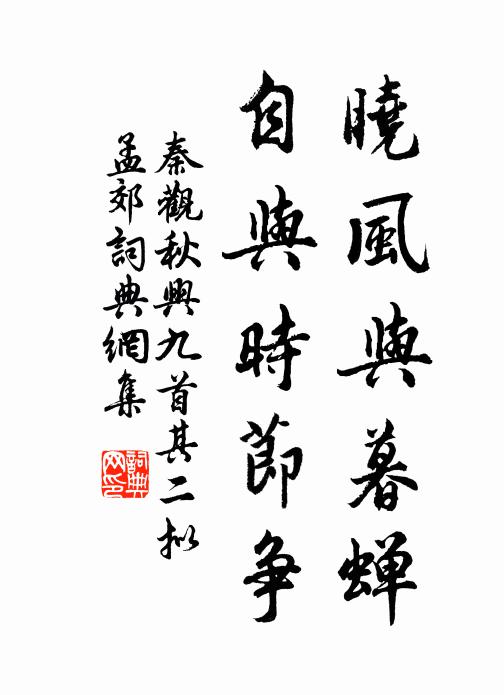 曉風與暮蟬
自與時節爭
秦觀秋興九首其二擬
孟郊詞典網集
詞典
网印